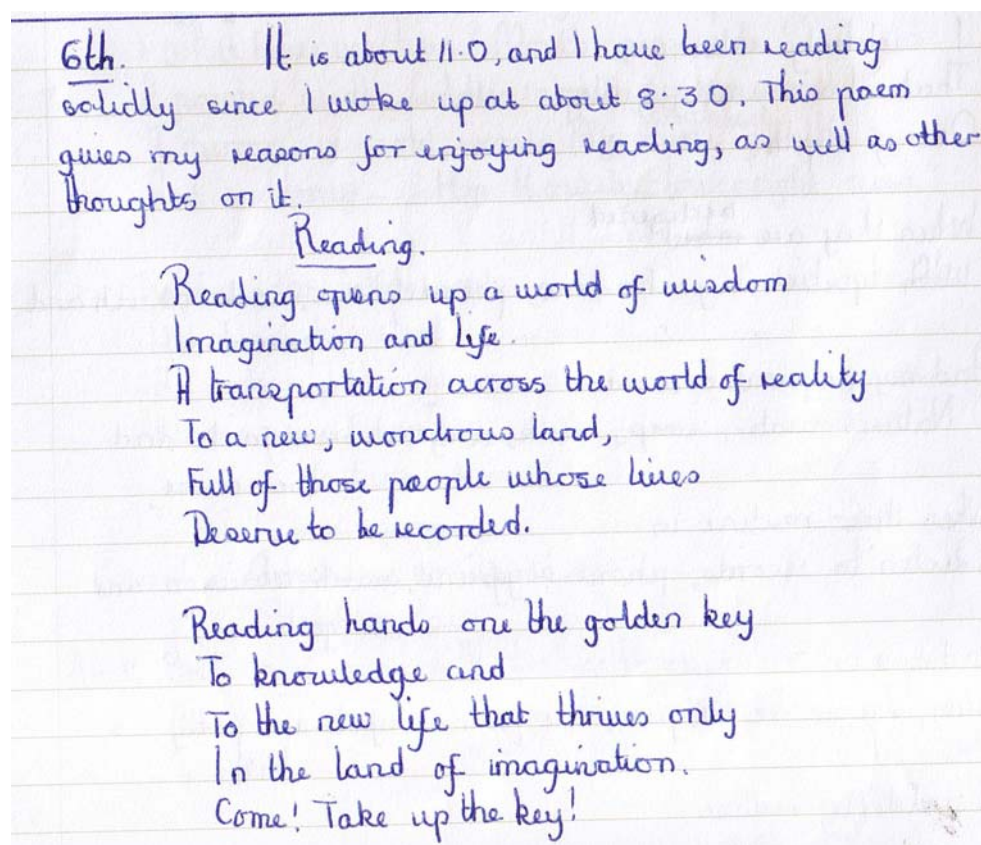 6th. It is about 11.0, and I have been reading
solidly since I woke up at about 8.30. This poem
gives my reasons for enjoying reading, as well as other
thoughts on it.
Reading.
Reading opens up a world of wisdom
Imagination and Life.
A transportation across the world of reality
To a new, wondrous land,
Full of those people whose lives
Deserve to be recorded.
Reading hands one the golden key
To knowledge and
To the new life that thrives only
In the land of imagination.
Come! Take up the key!